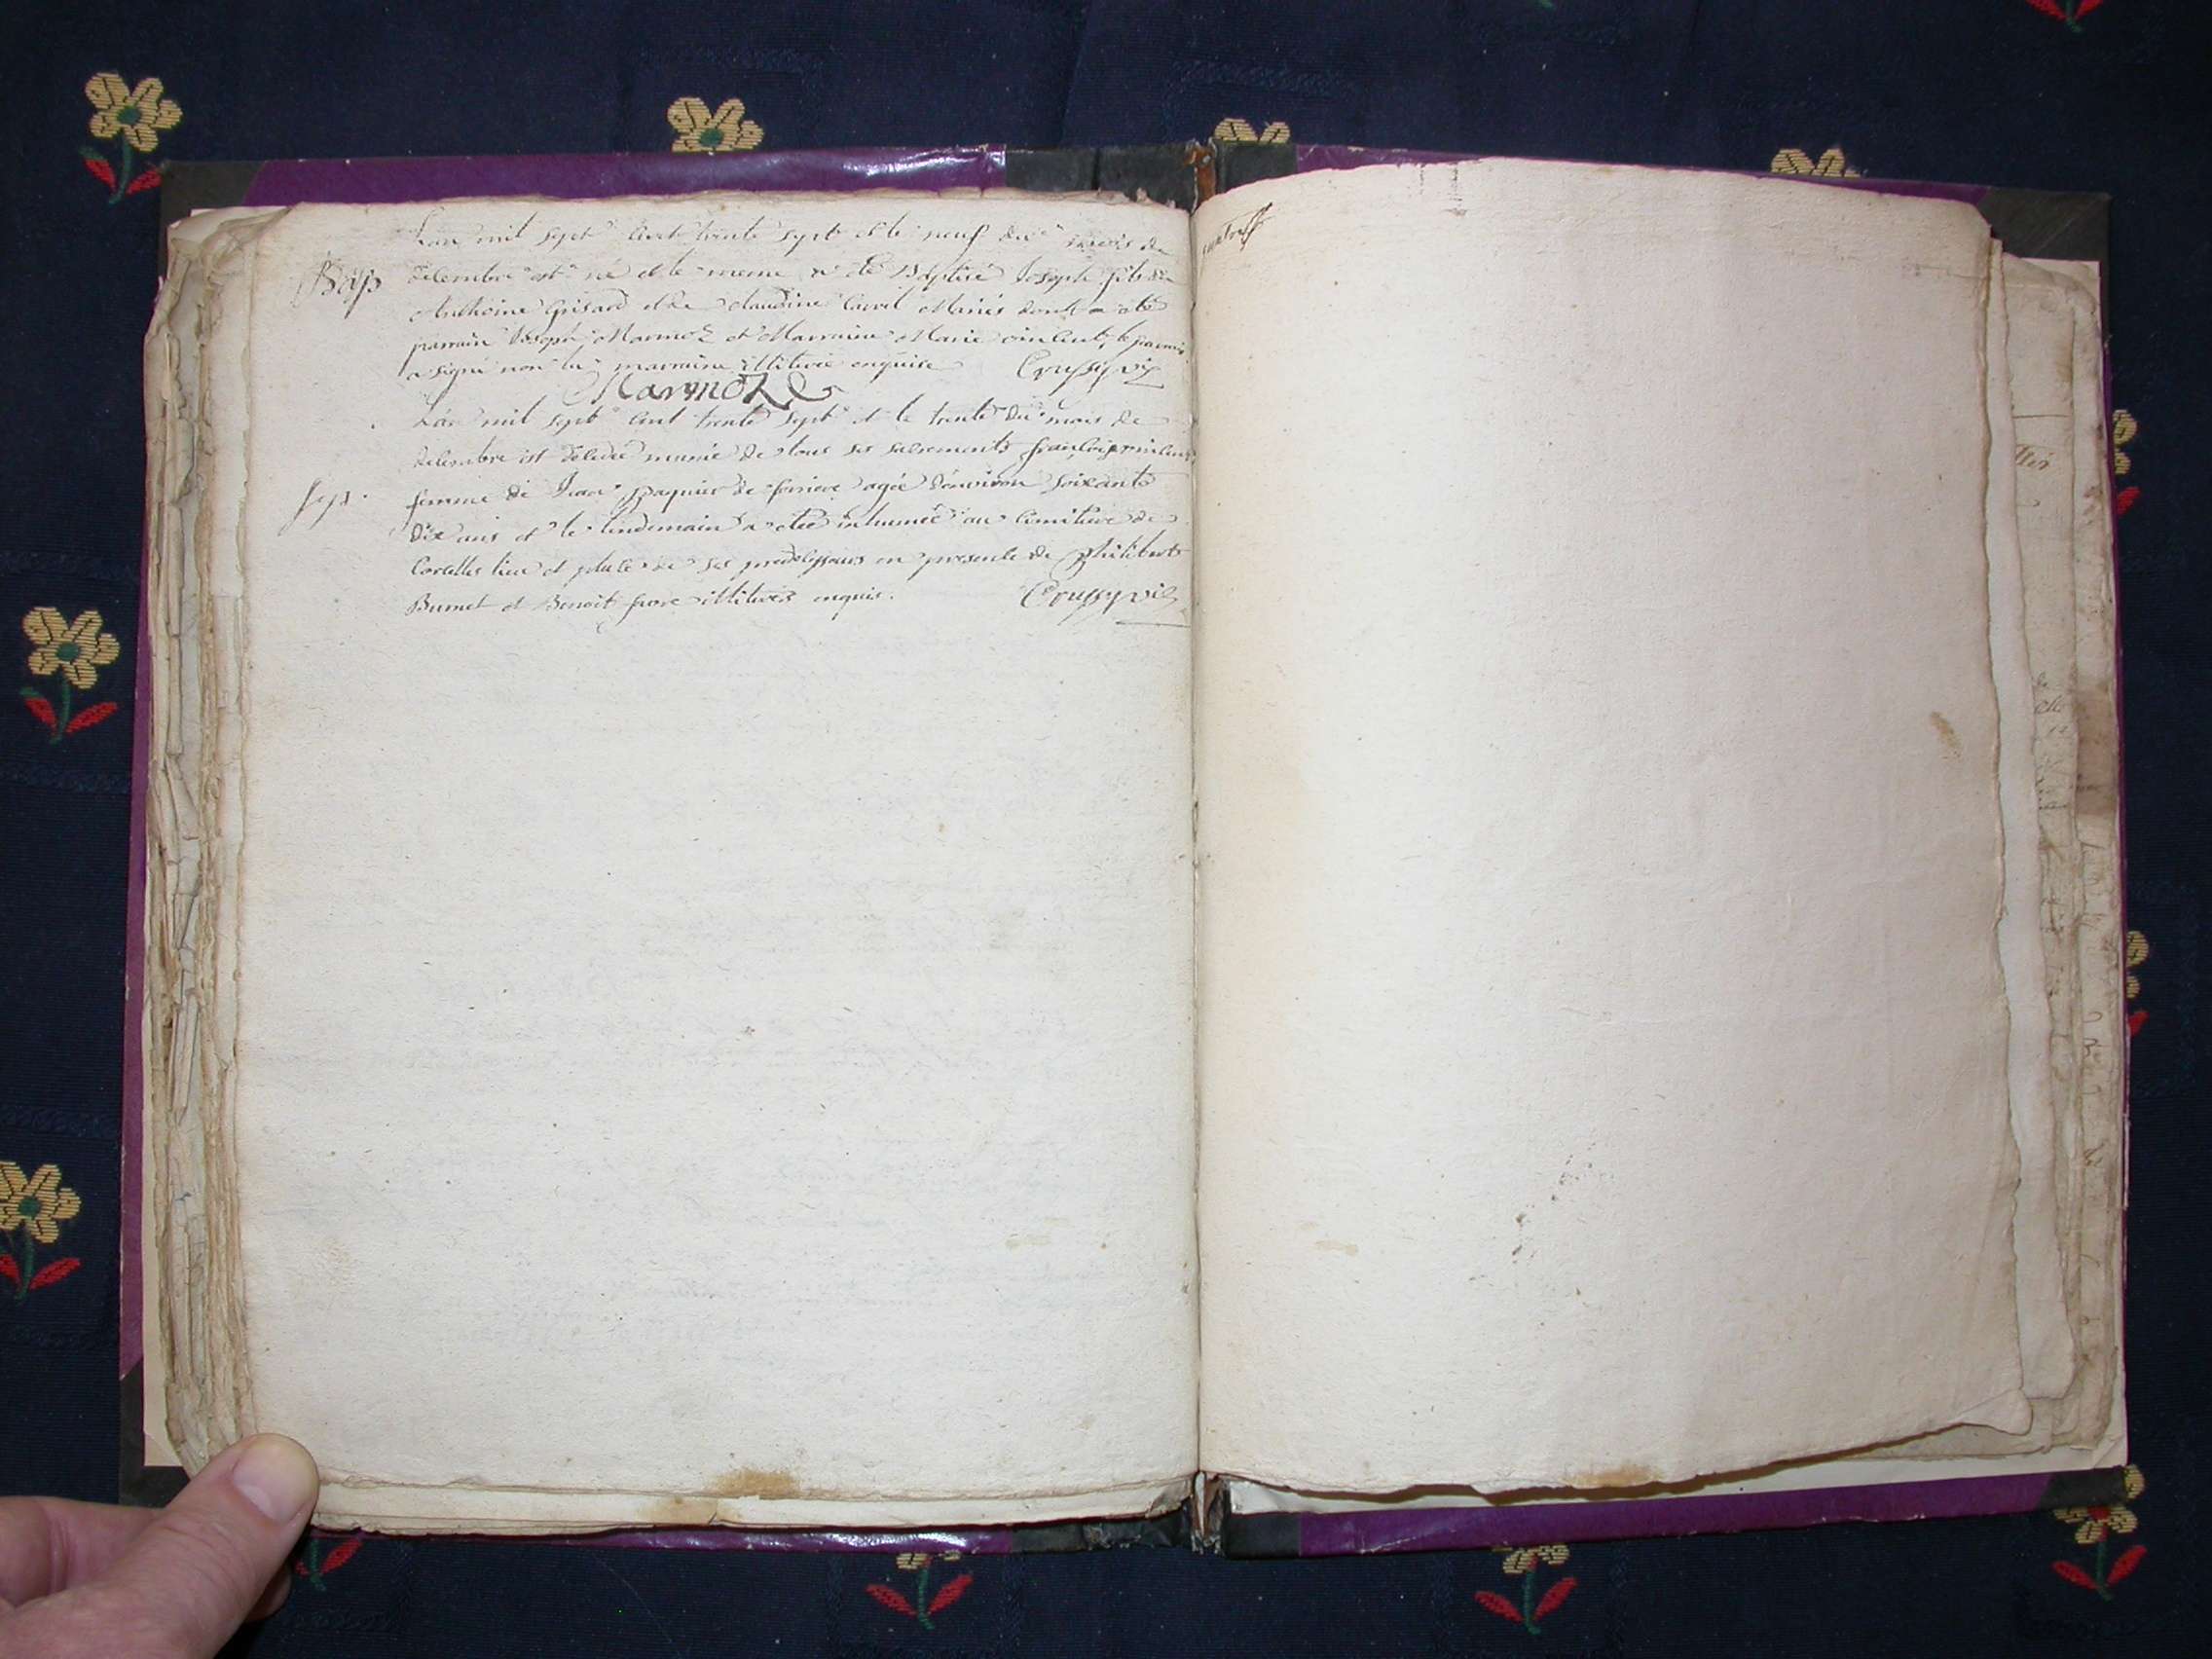 L'an mil sept cent trente sept et le neuf du mois de
Bap decembre est né et le meme a eté Baptisé Joseph fils de
Anthoine Grisard et de Claudine Carril Mariés dont a eté
parrain Joseph Marmoz et Marraine Marie vincent, le parrain
a signé non la marraine illiterée enquise Croussy vic
Marmoz
L'an mil sept cent trente sept et le trente du mois de
decembre est decedée munie de tous ses sacrements françoise vincent
Sep. femme de Jean paquier de ferriere agée d'environ soixante
dix ans et le lendemain a etée inhumée au cimitiere de
Corcelles lieu et place de ses predecesseurs en presence de philibert
Burnet et Benoit favre illiterés enquis. Croussy vic